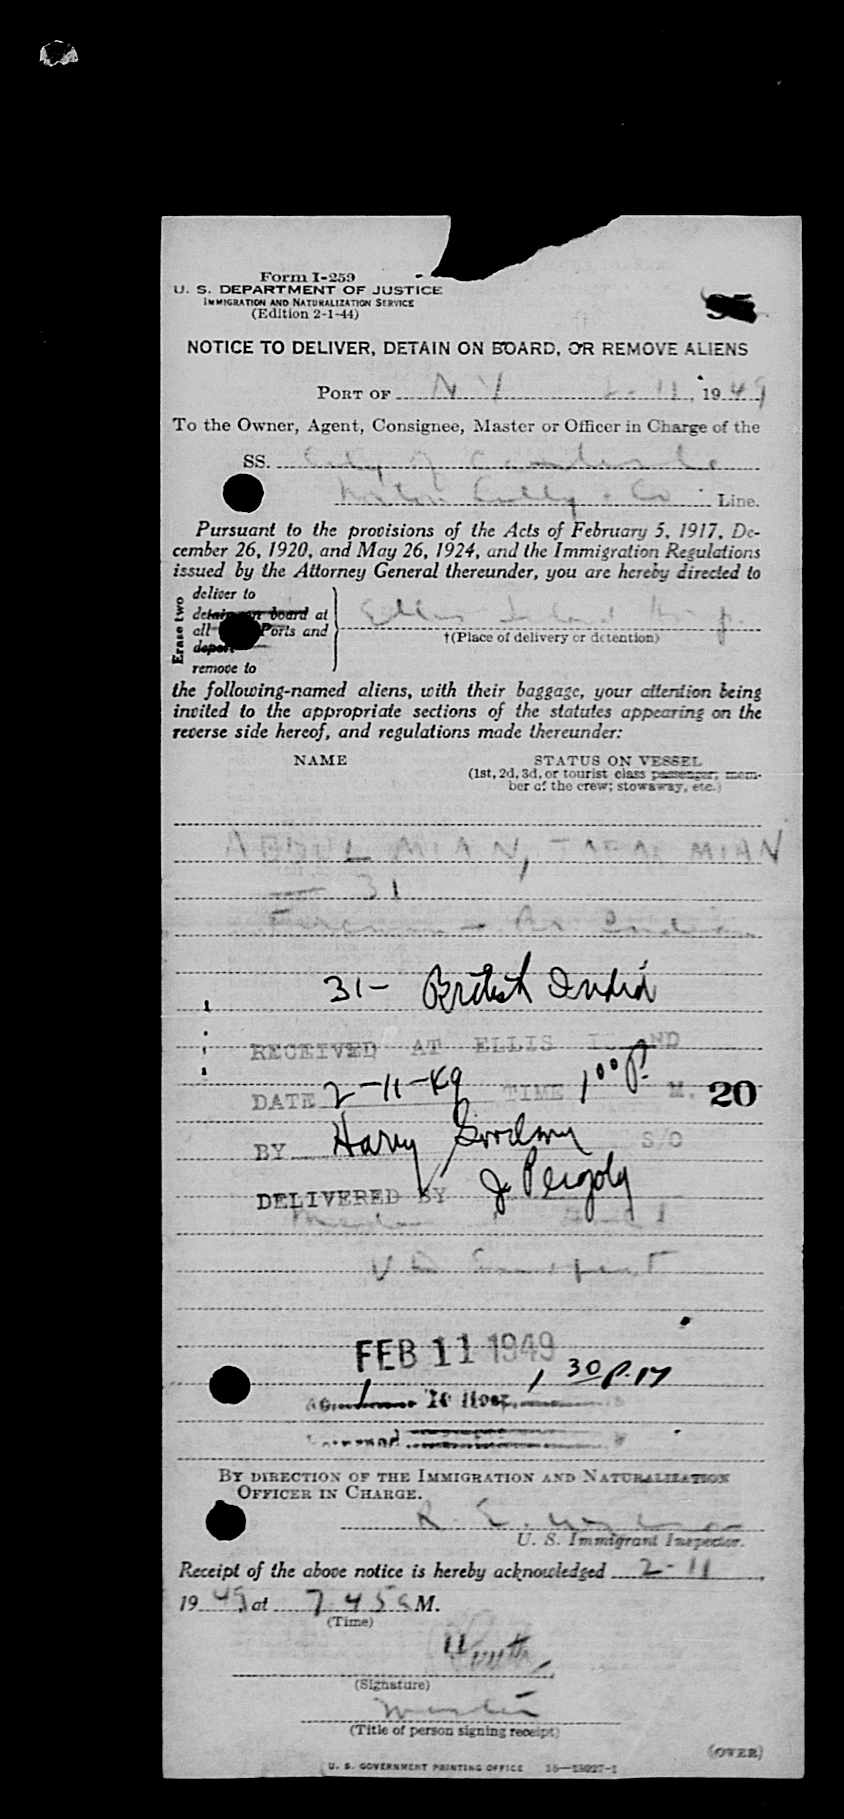 Form I-259
U. S. DEPARTMENT OF JUSTICE
IMMIGRATION AND NATURALIZATION SERVICE
(Edition 2-1-44)
NOTICE TO DELIVER, DETAIN ON BOARD, OR REMOVE ALIENS
PORT OF N Y 2-11, 1949
To the Owner, Agent, Consignee, Master or Officer in Charge of the
SS. City of
Norton Lilly & Co Line.
Pursuant to the provisions of the Acts of February 5, 1917, De-
cember 26, 1920, and May 26, 1924, and the Immigration Regulations
issued by the Attorney General thereunder, you are hereby directed to
Erase two
deliver to
detain on board at
all Ports and
deport
remove to
Ellis Island Hosp.
†(Place of delivery or detention)
the following-named aliens, with their baggage, your attention being
invited to the appropriate sections of the statutes appearing on the
reverse side hereof, and regulations made thereunder:
NAME
STATUS ON VESSEL
(1st, 2d, 3d, or tourist class passenger; mem-
ber of the crew; stowaway, etc.)
ABDUL MIAN, MIAN
31
Fireman - Br India
31- British India
RECEIVED AT ELLIS ISLAND
DATE 2-11-49 TIME 1 00 P. M. 20
BY Harry S/O
DELIVERED BY J Pergoly
FEB 11 1949
1 30 P.M
Hosp.
BY DIRECTION OF THE IMMIGRATION AND NATURALIZATION
OFFICER IN CHARGE.
R. E.
U. S. Immigrant Inspector.
Receipt of the above notice is hereby acknowledged 2-11,
1949 at 7 45 a M.
(Time)
(Signature)
Master
(Title of person signing receipt)
(OVER)
U. S. GOVERNMENT PRINTING OFFICE 16-13927-1